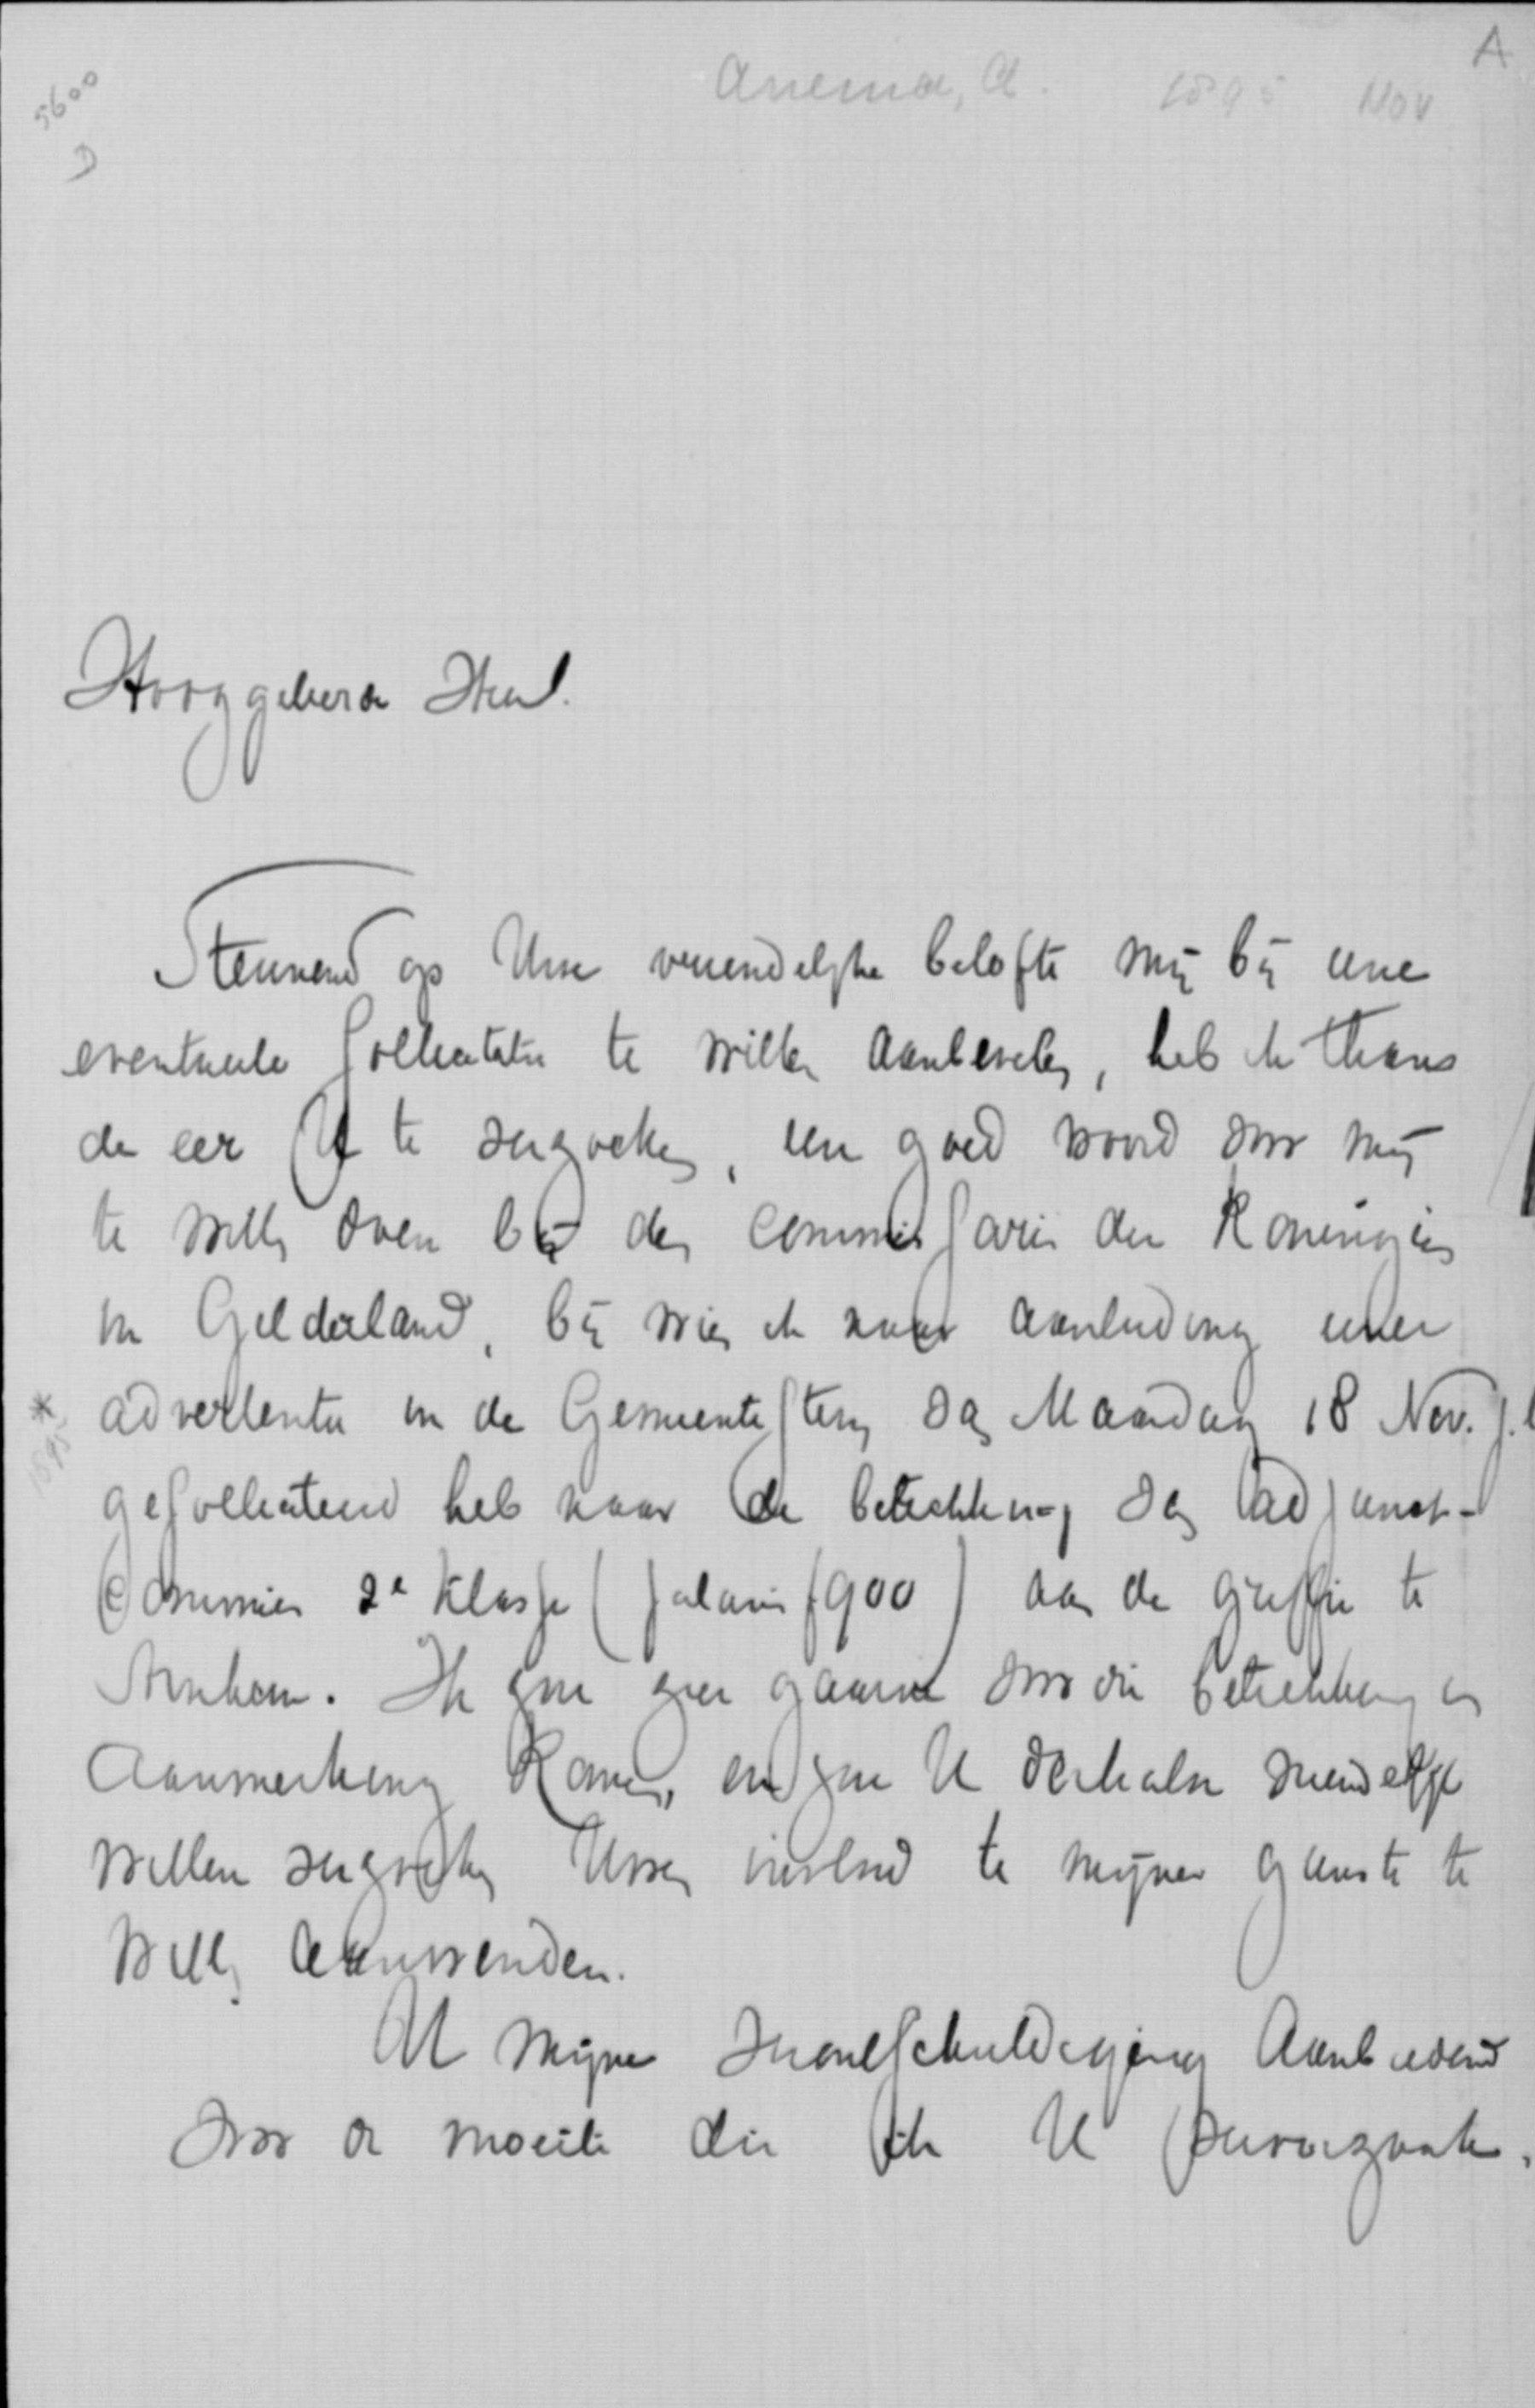 A
Anema, A. 1895 Nov
5600
D
Hooggeboren Heer.
Steunend op Uwe vriendelijke belofte mij bij eene
eventueele sollicitatie te willen aanbevelen, heb ik thans
de eer U te verzoeken, een goed woord voor mij
te willen doen bij den Commissaris der Koningin
in Gelderland, bij wien ik naar aanleiding eener
advertentie in de Gemeentestem van Maandag 18 Nov. j.l
* 1895
gesolliciteerd heb naar de betrekking van adjunct-
Commies 2e klasse (salaris f900) aan de griffie te
Arnhem. Ik zou zeer gaarne voor die betrekking in
aanmerking komen, en zou U derhalve vriendelijk
willen verzoeken Uwen invloed te mijner gunste te
willen aanwenden.
U mijne verontschuldiging aanbiedend
voor de moeite die ik U veroorzaak,